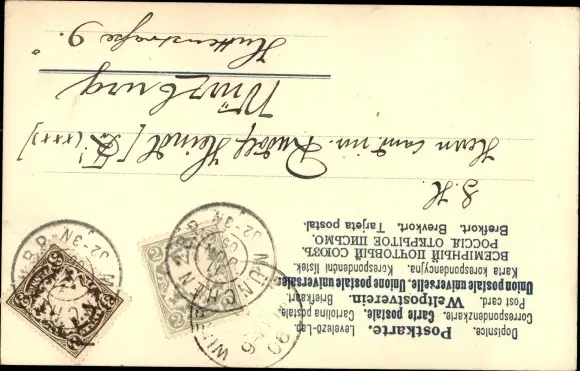 Dopisnice. Postkarte. Levelező-Lap.
Correspondenzkarte. Carte postale. Cartolina postale
Post card. Weltpostverein. Briefkaart
Union postale universelle. Unione postale universale
Karta korespondencyjna. Korespondenční lístek.
ВСЕМІРНЫЙ ПОЧТОВЫЙ СОЮЗЪ.
РОССІЯ. ОТКРЫТОЕ ПИСЬМО.
Brefkort. Brevkort. Tarjeta postal.
S. H.
Herrn cand. im. Rudolf Heindl [ (xxx)]
Würzburg
Huttenstraße 9.
MÜNCHEN
2
3
3